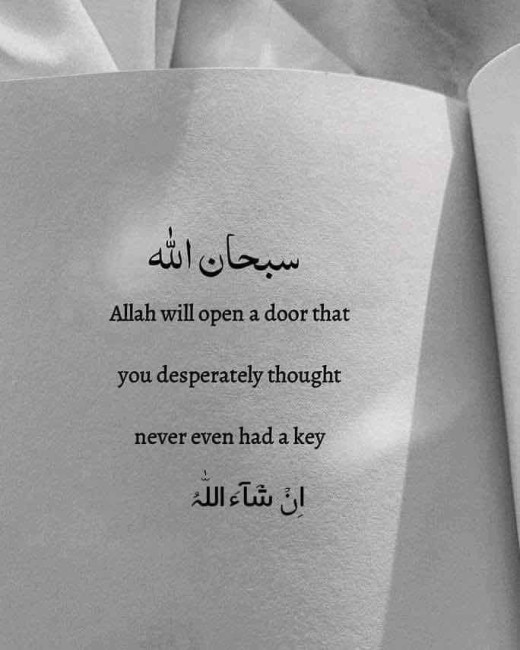 سبحان الله
Allah will open a door that
you desperately thought
never even had a key
اِنْ شَآءَ اللّٰهُ